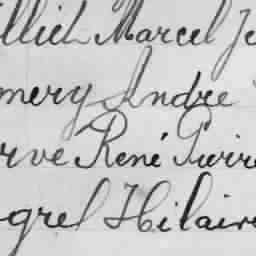 illich Marcel Je
mery Andre
rve René Pierre
grel Hilaire